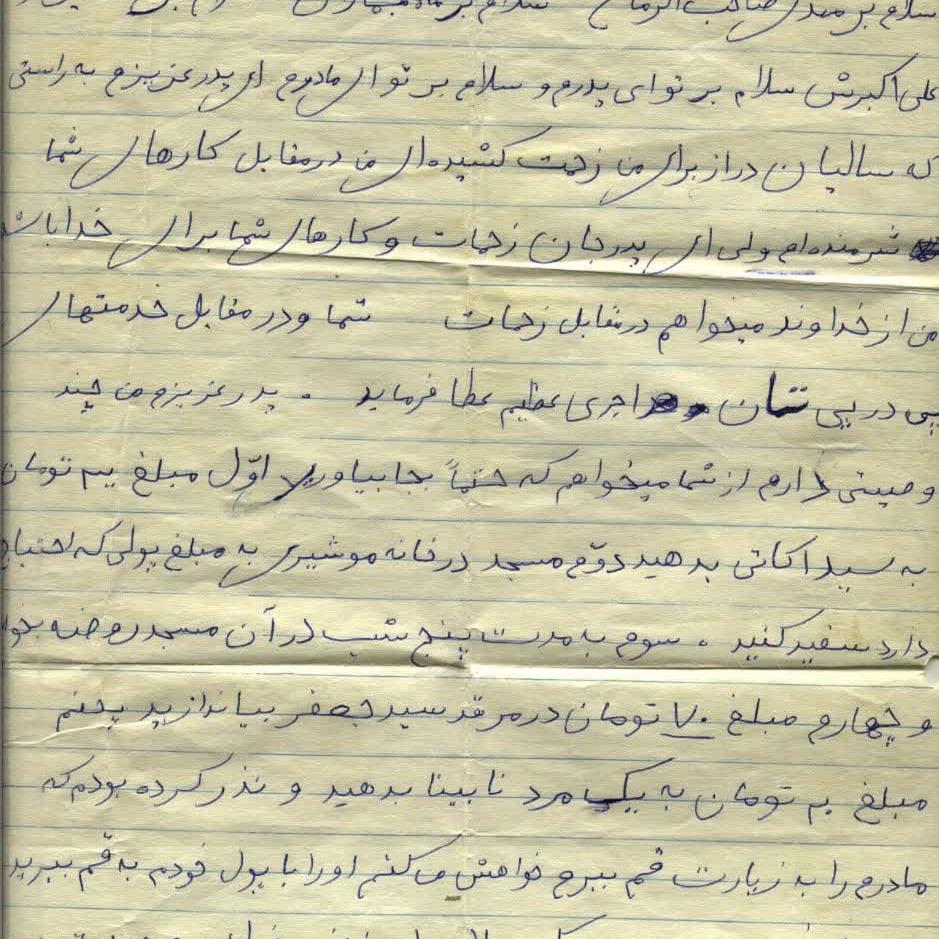 سلام بر مهدی صاحب الزمان سلام بر
علی اکبرش سلام بر تو ای پدرم و سلام بر تو ای مادرم ای پدر عزیزم به راستی
که سالیان دراز برای من زحمت کشیده‌ای من در مقابل کارهای شما
شرمنده‌ام ولی ای پدر جان زحمات و کارهای شما برای خدا باشد
من از خداوند میخواهم در مقابل زحمات شما و در مقابل خدمتهای
پی در پی تان اجری عظیم عطا فرماید . پدر عزیزم من چند
وصیتی دارم از شما میخواهم که حتماً بجا بیاورید اوّل مبلغ تومان
به سید بدهید دوّم مسجد در خانه موشیری به مبلغ پولی که احتیاج
دارد سفید کنید ، سوم به مدت پنج شب در آن مسجد روضه
و چهارم مبلغ ۷۰ تومان در مرقد سید جعفر بیاندازید پنجم
مبلغ تومان به یک مرد نابینا بدهید و نذر کرده بودم که
مادرم را به زیارت قم ببرم خواهش می کنم او را با پول خودم به قم ببرید